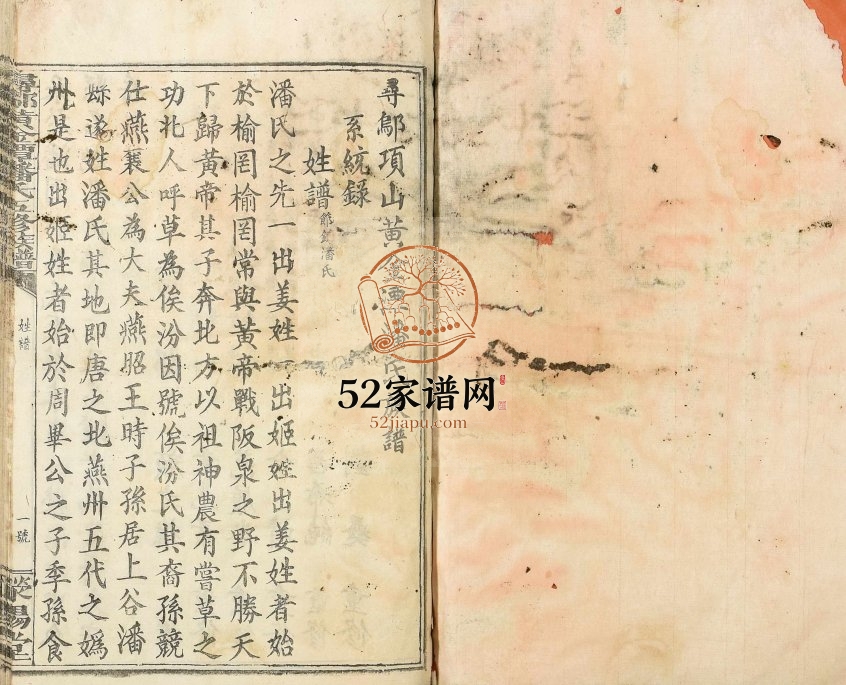 尋鄔項山黃潘氏族譜
系統錄
姓譜 節錄潘氏
潘氏之先一出姜姓一出姬姓出姜姓者始
於榆罔榆罔常與黃帝戰阪泉之野不勝天
下歸黃帝其子奔北方以祖神農有嘗草之
功北人呼草為俟汾因號俟汾氏其裔孫競
仕燕襄公為大夫燕昭王時子孫居上谷潘
縣遂姓潘氏其地即唐之北燕州五代之媯
州是也出姬姓者始於周畢公之子季孫食
潘氏五修族譜
姓譜
一號
滎陽堂
52家谱网
52jiapu.com